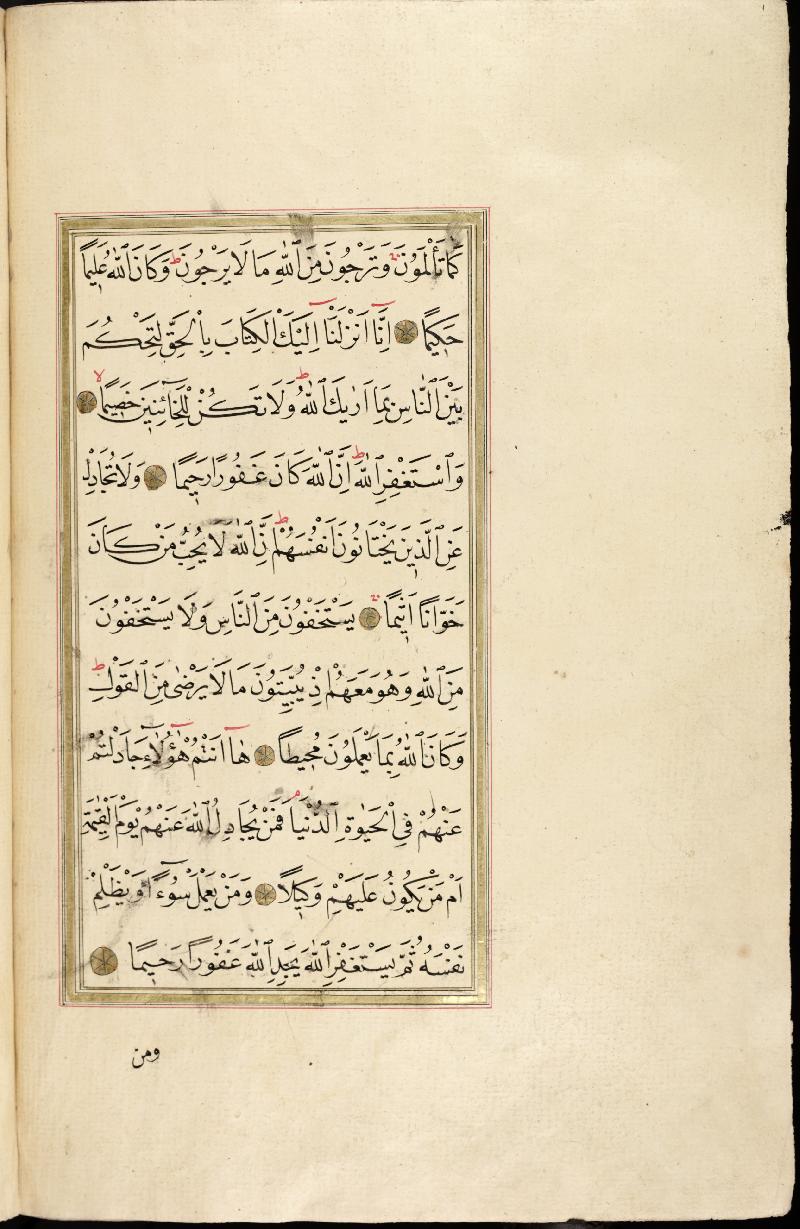 كَمَا تَأْلَمُونَ وَتَرْجُونَ مِنَ اللّٰهِ مَا لَا يَرْجُونَ ط وَكَانَ اللّٰهُ عَلِيمًا
حَكِيمًا اِنَّا اَنْزَلْنَا اِلَيْكَ الْكِتَابَ بِالْحَقِّ لِتَحْكُمَ
بَيْنَ النَّاسِ بِمَا اَرٰيكَ اللّٰهُ ط وَلَا تَكُنْ لِلْخَائِنِينَ خَصِيمًا لا
وَاسْتَغْفِرِ اللّٰهَ ط اِنَّ اللّٰهَ كَانَ غَفُورًا رَحِيمًا وَلَا تُجَادِلْ
عَنِ الَّذِينَ يَخْتَانُونَ اَنْفُسَهُمْ ط اِنَّ اللّٰهَ لَا يُحِبُّ مَنْ كَانَ
خَوَّانًا اَثِيمًا يَسْتَخْفُونَ مِنَ النَّاسِ وَلَا يَسْتَخْفُونَ
مِنَ اللّٰهِ وَهُوَ مَعَهُمْ اِذْ يُبَيِّتُونَ مَا لَا يَرْضٰى مِنَ الْقَوْلِ ط
وَكَانَ اللّٰهُ بِمَا يَعْمَلُونَ مُحِيطًا هَا اَنْتُمْ هٰؤُلَاءِ جَادَلْتُمْ
عَنْهُمْ فِي الْحَيٰوةِ الدُّنْيَا م فَمَنْ يُجَادِلُ اللّٰهَ عَنْهُمْ يَوْمَ الْقِيٰمَةِ
اَمْ مَنْ يَكُونُ عَلَيْهِمْ وَكِيلًا وَمَنْ يَعْمَلْ سُوءًا اَوْ يَظْلِمْ
نَفْسَهُ ثُمَّ يَسْتَغْفِرِ اللّٰهَ يَجِدِ اللّٰهَ غَفُورًا رَحِيمًا
ومن